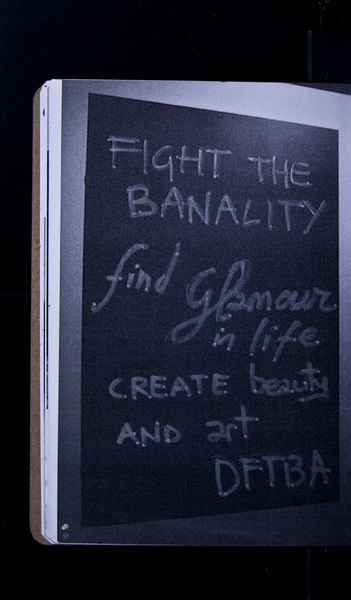 FIGHT THE
BANALITY
find Glamour
in life
CREATE beauty
AND art
DFTBA